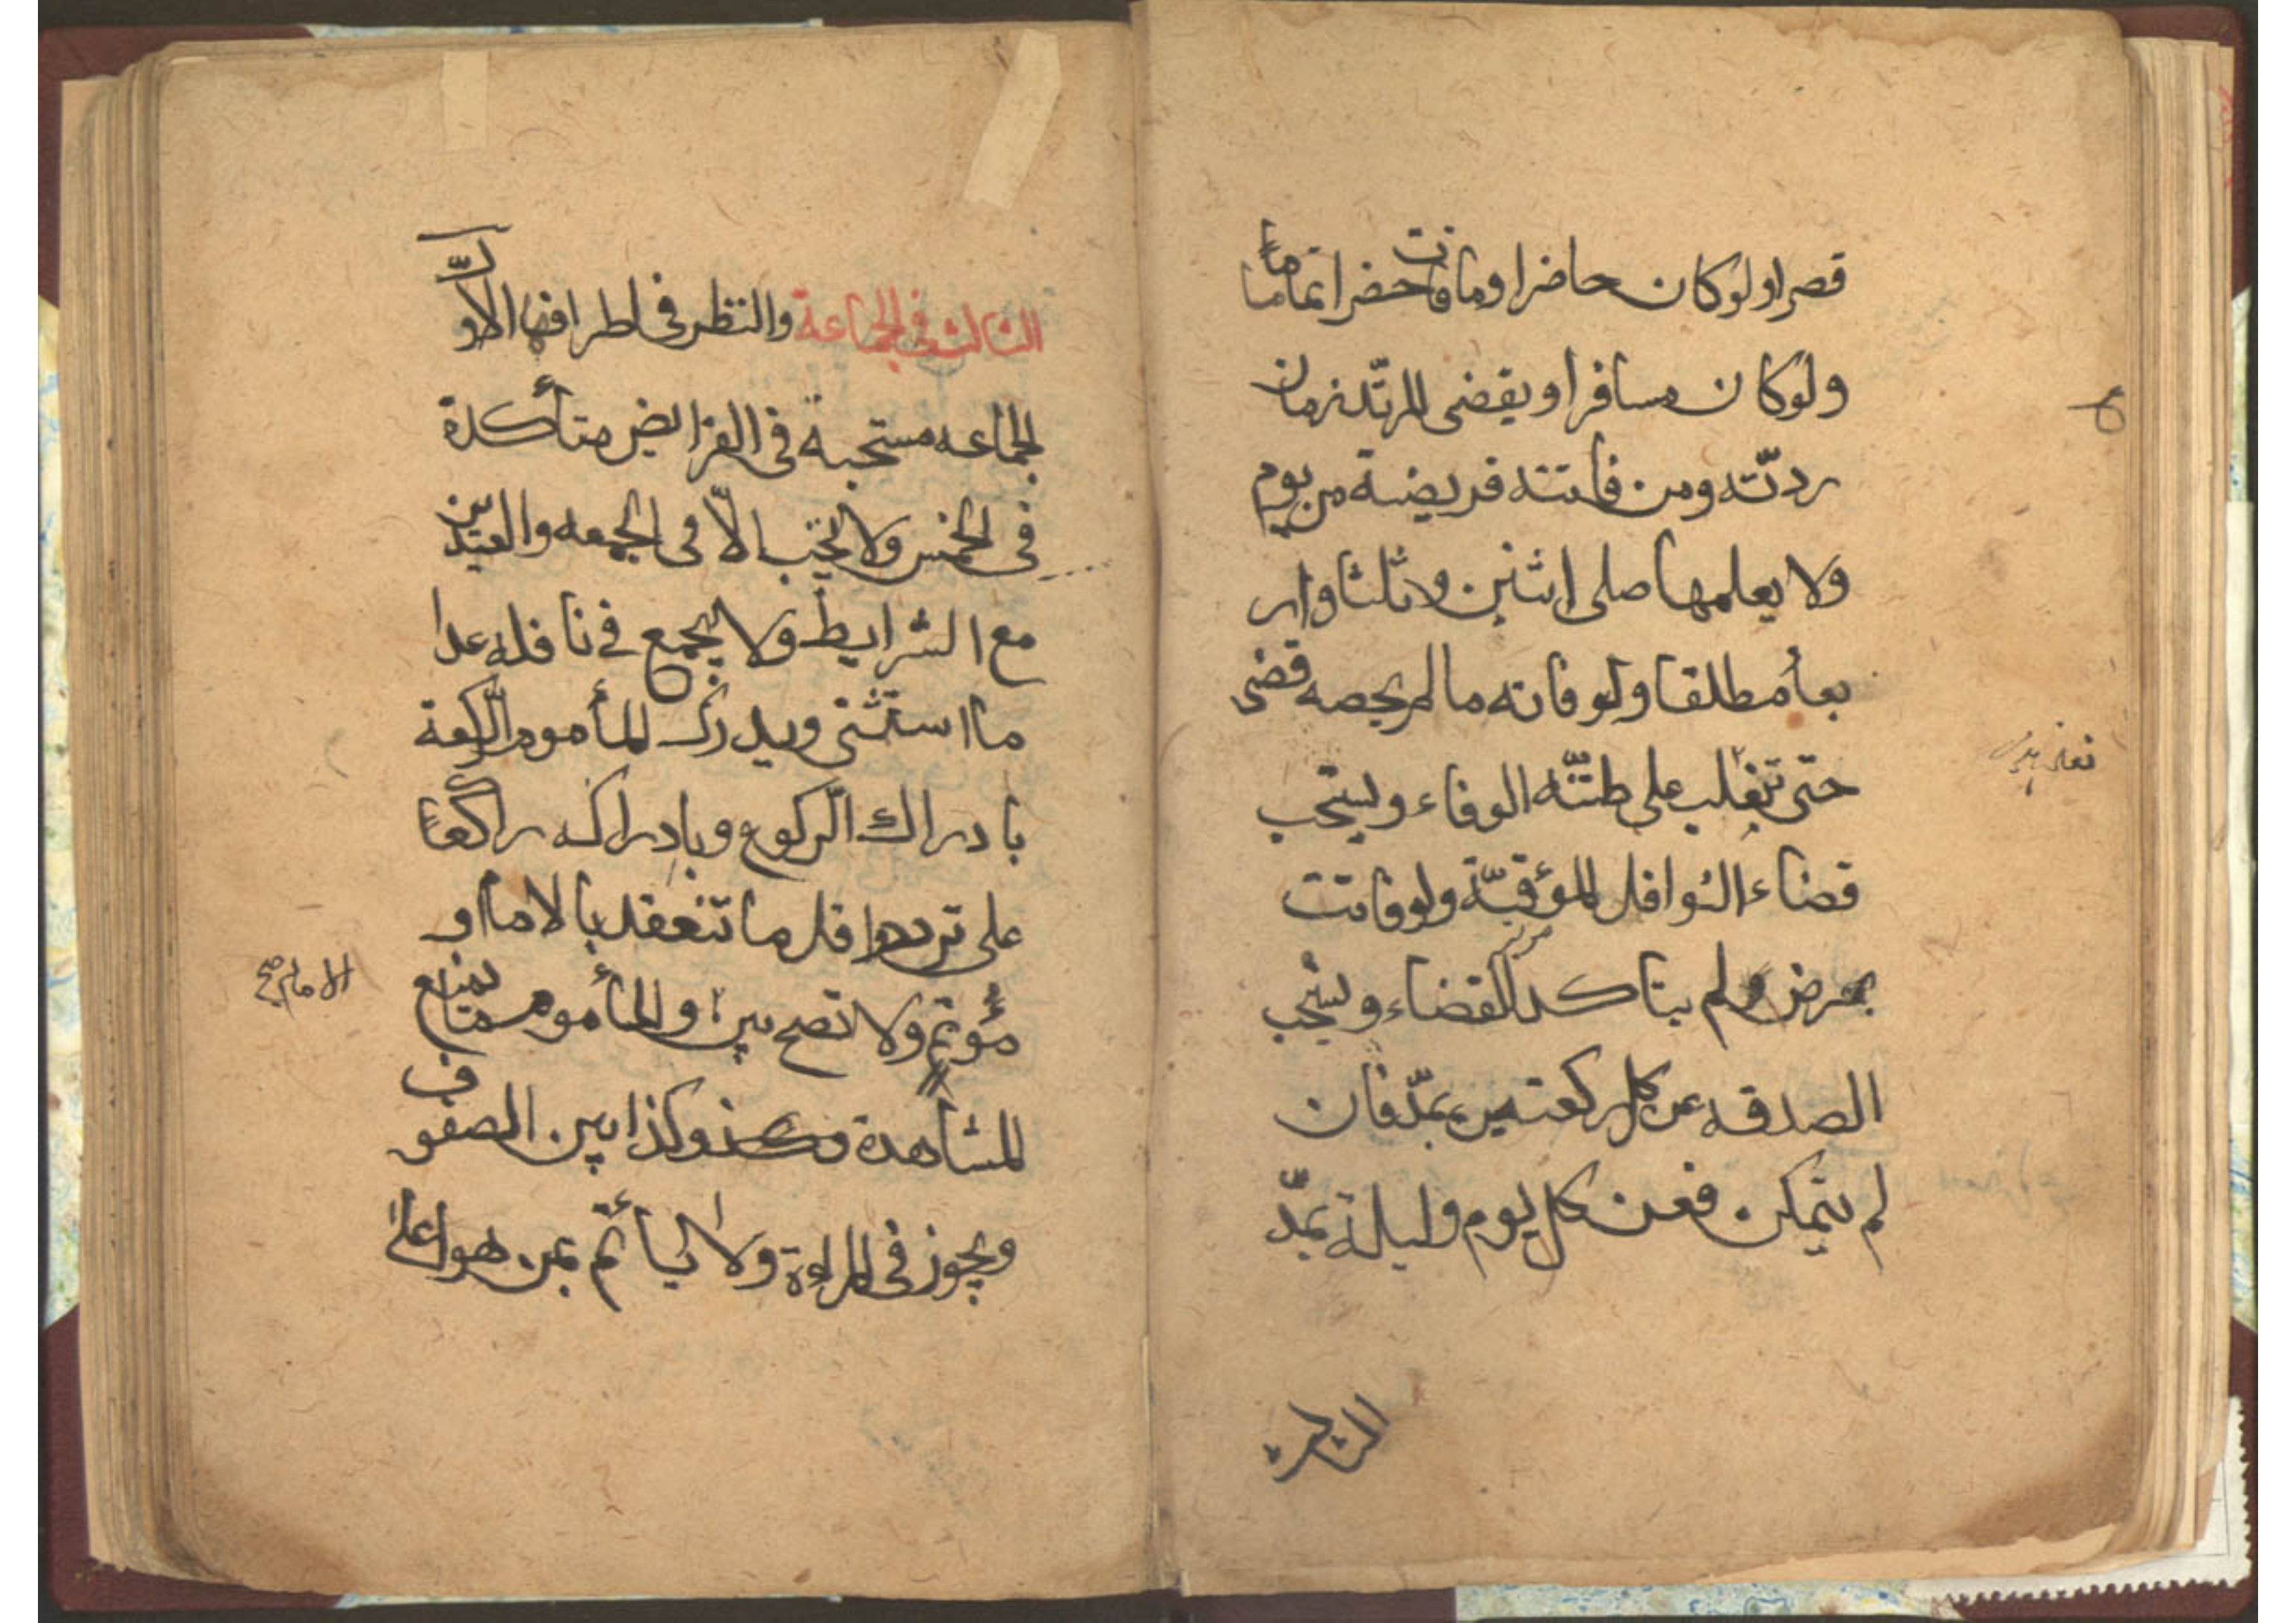 قصرا ولو كان حاضرا وما فات حضرا تماما
ولو كان مسافرا ويقضى المرتد زمان
ردته ومن فاتته فريضة من يوم
ولا يعلمها صلى اثنين وثلثا وار
بعا مطلقا ولو فاته ما لم يحصه قضى
حتى تغلب على ظنّه الوفاء ويستحب
قضاء النوافل المؤقتة ولو فاتت
بمرض لم يتاكد القضاء ويستحب
الصدقه عن كل ركعتين بمدّ فان
لم يتمكن فعن كل يوم وليلة بمدّ
الثالث في الجماعة والنظر فى اطرافها الاوّل
الجماعه مستحبة فى الفرايض متأكدة
فى الخمس ولا تجب الّا فى الجمعه والعيدين
مع الشرايط ولا يجمع في نافله عدا
ما استثنى ويدرك المأموم الركعة
بادراك الركوع وبادراكه راكعاً
على تردد واقل ما تنعقد بالامام او
مؤتم ولا تصح بين والمأموم ما يمنع
الامام صح
المشاهدة وكذا بين الصفوف
ويجوز فى المراءة ولا يأتم بمن هو اعلى